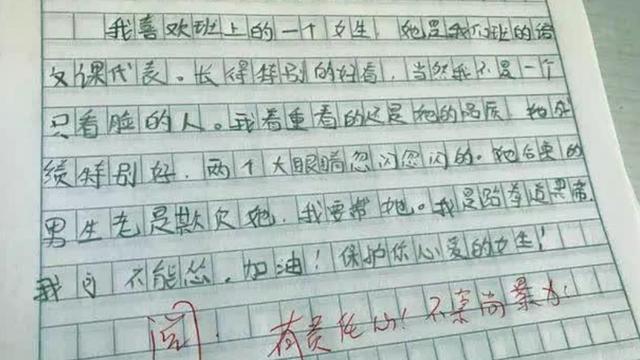 我喜欢班上的一个女生，她是我们班的语
文课代表。长得特别的好看，当然我不是一个
只看脸的人。我着重看的还是她的品质，她成
绩特别好，两个大眼睛忽闪忽闪的。她后里的
男生老是欺欠她，我要帮她。我是跆拳道黑带，
我 不能怂，加油！保护你心爱的女生！
阅 有责任心！不崇尚暴力！